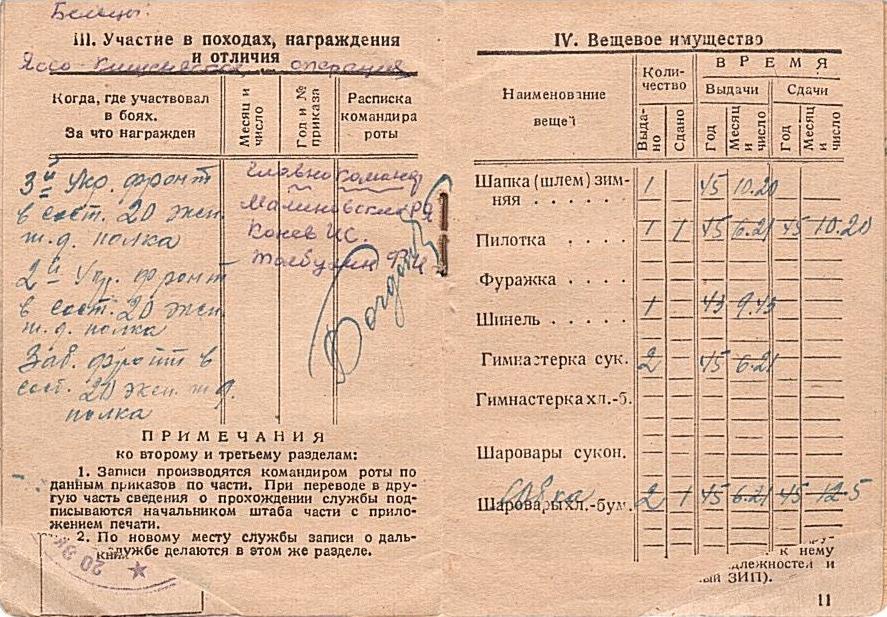 Бельцы.
III. Участие в походах, награждения
и отличия
Яссо-Кишиневская операция
Когда, где участвовал
в боях.
За что награжден
Месяц и
число
Год и №
приказа
Расписка
командира
роты
3й Укр. фронт
в сост. 20 эксп.
ж.д. полка
2й Укр. фронт
в сост. 20 эксп.
ж.д. полка
Заб. фронт в
сост. 20 эксп. ж.д.
полка
Главнокоманд
Малиновский РЯ
Конев И.С.
Толбухин Ф.И.
ПРИМЕЧАНИЯ
ко второму и третьему разделам:
1. Записи производятся командиром роты по
данным приказов по части. При переводе в дру-
гую часть сведения о прохождении службы под-
писываются начальником штаба части с прило-
жением печати.
2. По новому месту службы записи о даль-
службе делаются в этом же разделе.
20
IV. Вещевое имущество
Наименование
вещей
Коли-
чество
ВРЕМЯ
Выдачи
Сдачи
Выда-
но
Сдано
Год
Месяц
и
число
Год
Месяц
и
число
Шапка (шлем) зим-
няя . . . . . . 1 45 10.20
Пилотка . . . . 1 1 45 6.21 45 10.20
Фуражка . . . .
Шинель . . . . . 1 43 9.45
Гимнастерка сук. 2 45 6.21
Гимнастерка хл.-б.
Шаровары сукон.
Шаровары хл.-бум. 2 1 45 6.21 45 12.5
к нему
длежностей и
ый ЗИП).
11